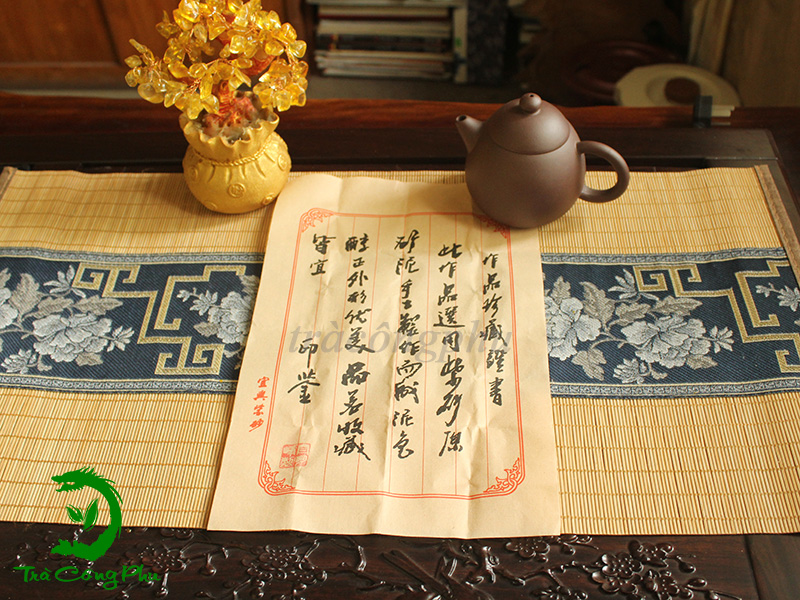 作品珍藏證書
此作品選用紫砂原
矿泥手工製作而成泥色
醇正外形优美品茗收藏
皆宜
印鑒
宜興紫砂
trà công phu
Trà Công Phu